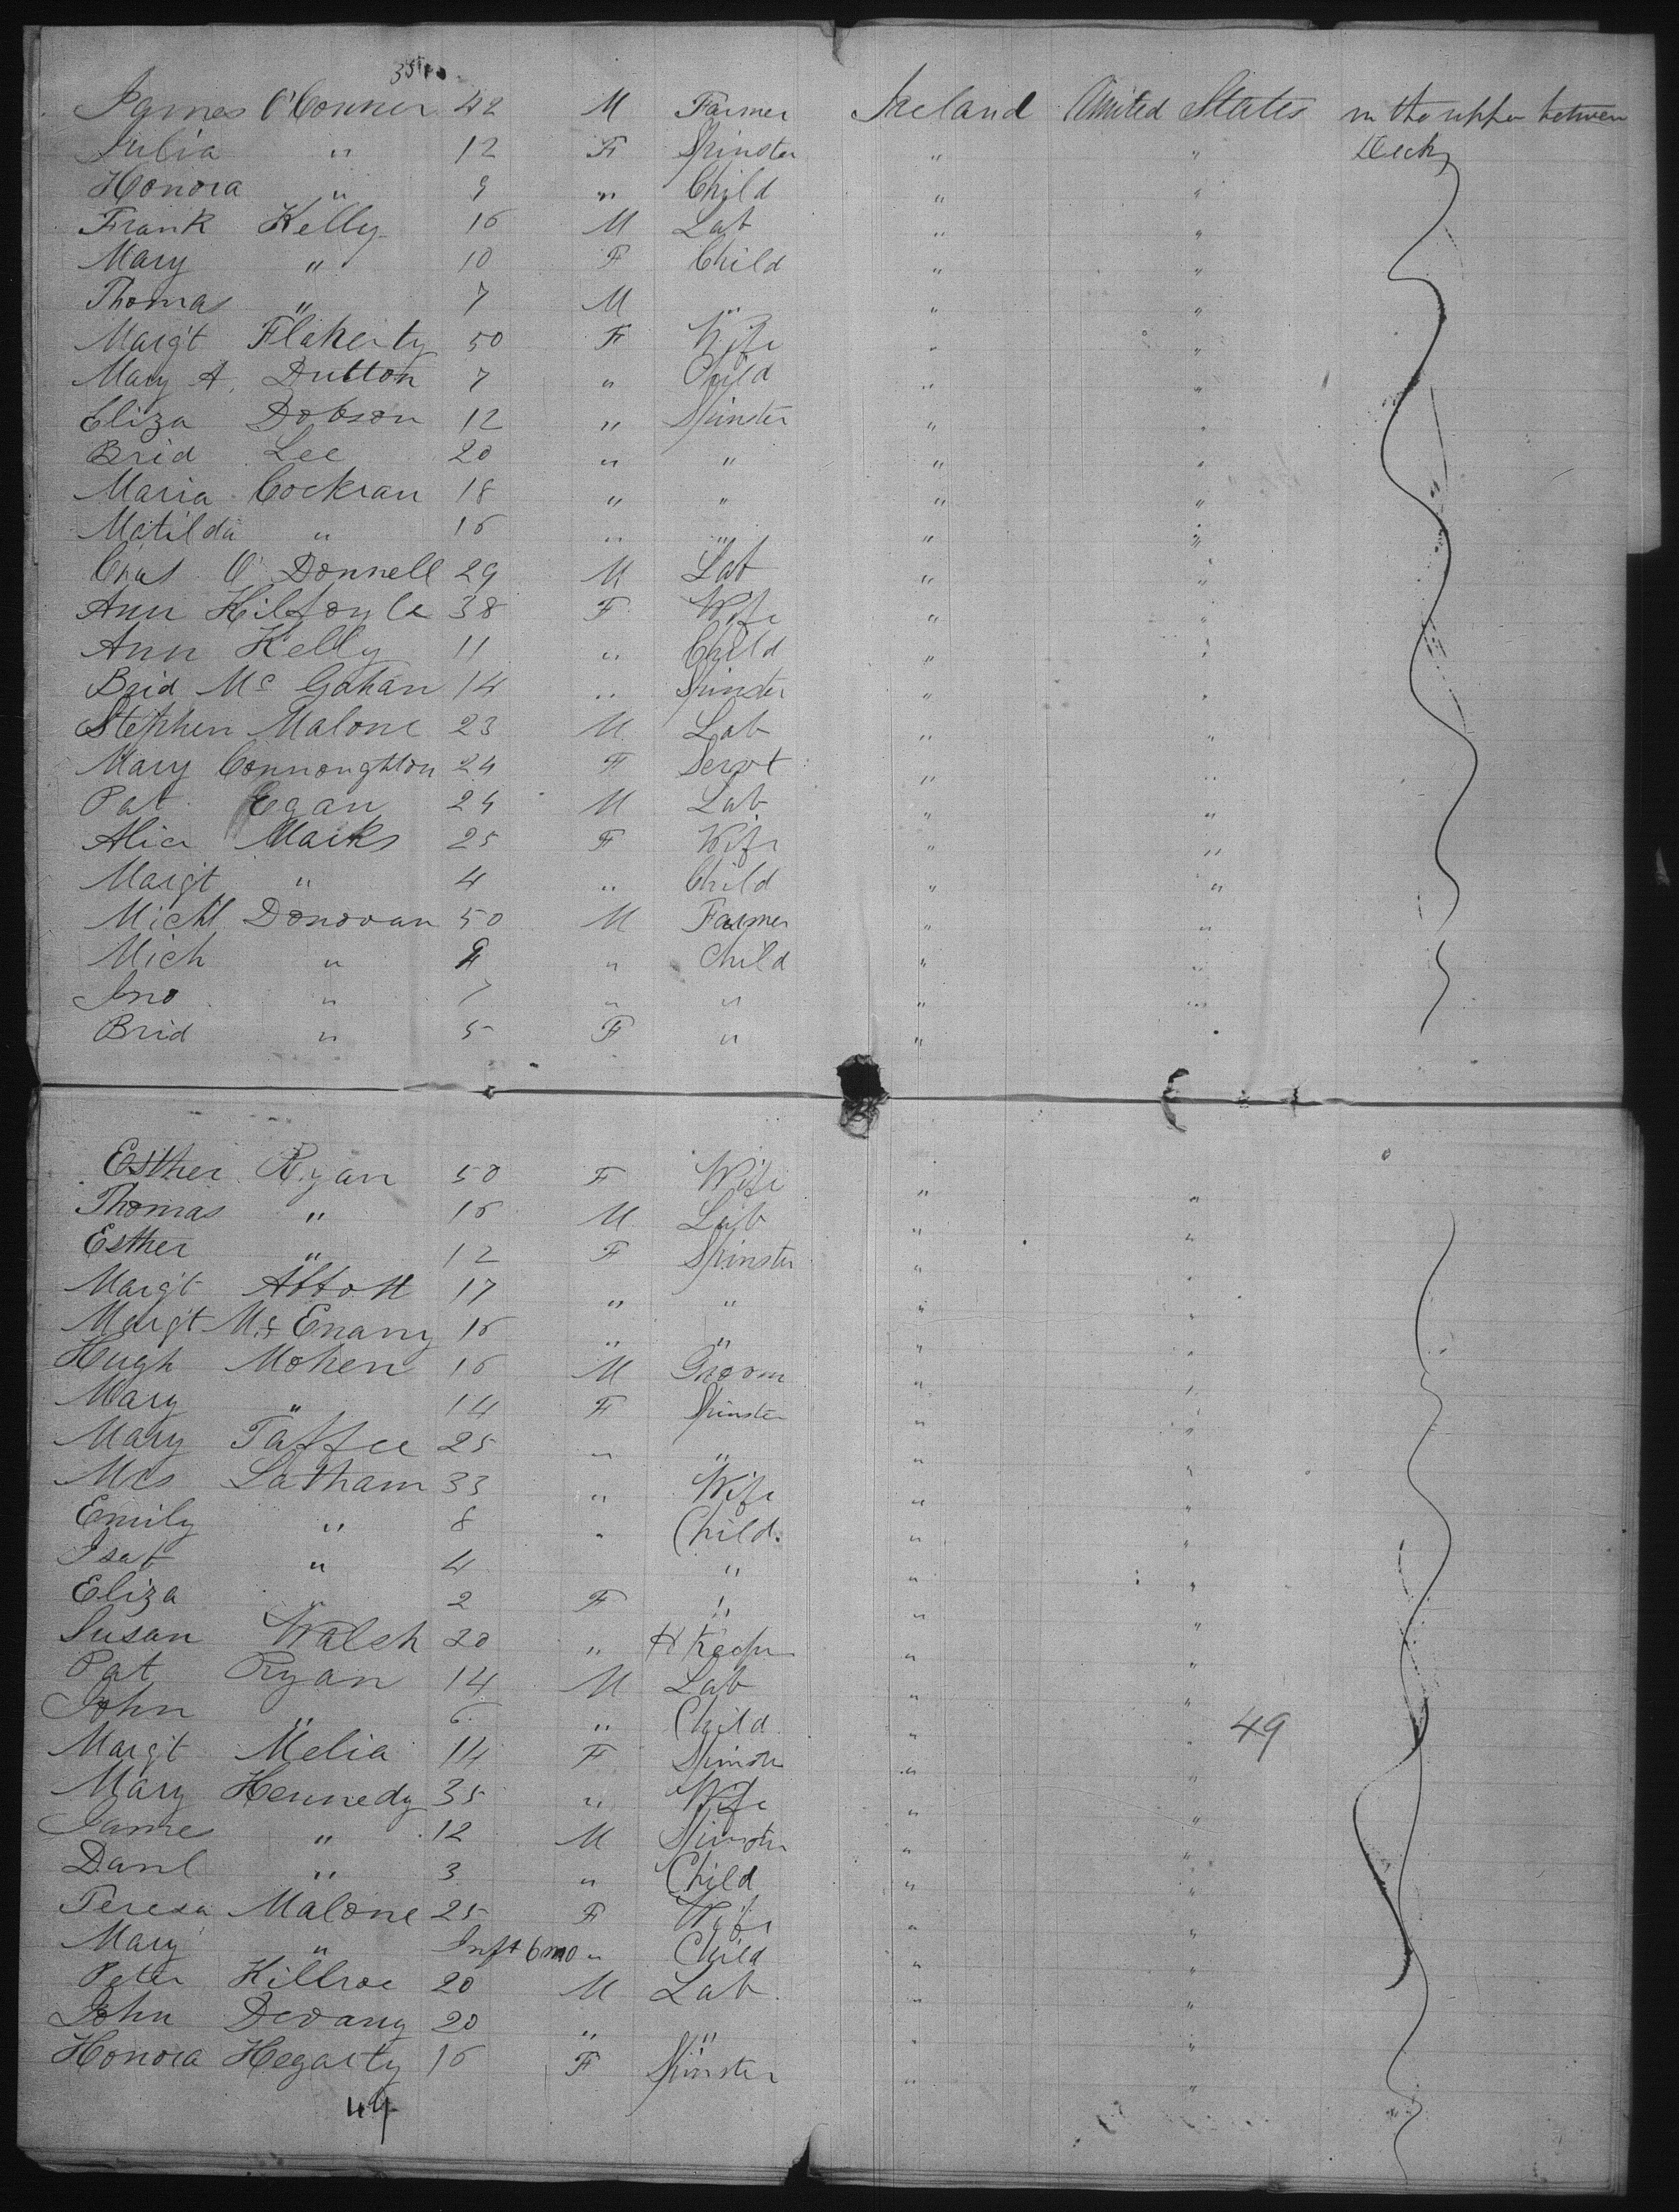 James O'Conner 42 M Farmer Ireland United States in the upper between
Julia " 12 F Spinster " " Decks
Honora " 9 " Child " "
Frank Kelly 16 M Lab " "
Mary " 10 F Child " "
Thomas " 7 M " " "
Margt Flaherty 50 F Wife " "
Mary A. Dutton 7 " Child " "
Eliza Dobson 12 " Spinster " "
Brid Lee 20 " " " "
Maria Cockran 18 " " " "
Matilda " 16 " " " "
Chas O'Donnell 29 M Lab " "
Ann Kilfoyle 38 F Wife " "
Ann Kelly 11 " Child " "
Brid Mc Gahan 14 " Spinster " "
Stephen Malone 23 M Lab " "
Mary Connoughton 24 F Servt " "
Pat Egan 24 M Lab " "
Alice Marks 25 F Wife " "
Margt " 4 " Child " "
Michl Donovan 50 M Farmer " "
Mich " 9 " Child " "
Jno " 7 " " " "
Brid " 5 F " "
Esther Ryan 50 F Wife " "
Thomas " 16 M Lab " "
Esther " 12 F Spinster " "
Margt Abbott 17 " " " "
Margt Mc Enany 16 " " " "
Hugh Mohen 16 M Groom " "
Mary " 14 F Spinster " "
Mary Taffee 25 " " " "
Mrs Latham 33 " Wife " "
Emily " 8 " Child. " "
Isab " 4 " " "
Eliza " 2 F " " "
Susan Walsh 20 " H Keeper " "
Pat Ryan 14 M Lab " "
John " 6 " Child " " 49
Margt Melia 14 F Spinster " "
Mary Kennedy 35 " Wife " "
Jame " 12 M Spinster " "
Danl " 3 " Child " "
Teresa Malone 25 F Wife " "
Mary " Inft 6 mo " Child " "
Peter Killroe 20 M Lab " "
John Devany 20 " " " "
Honora Hegarty 16 F Spinster " "
49